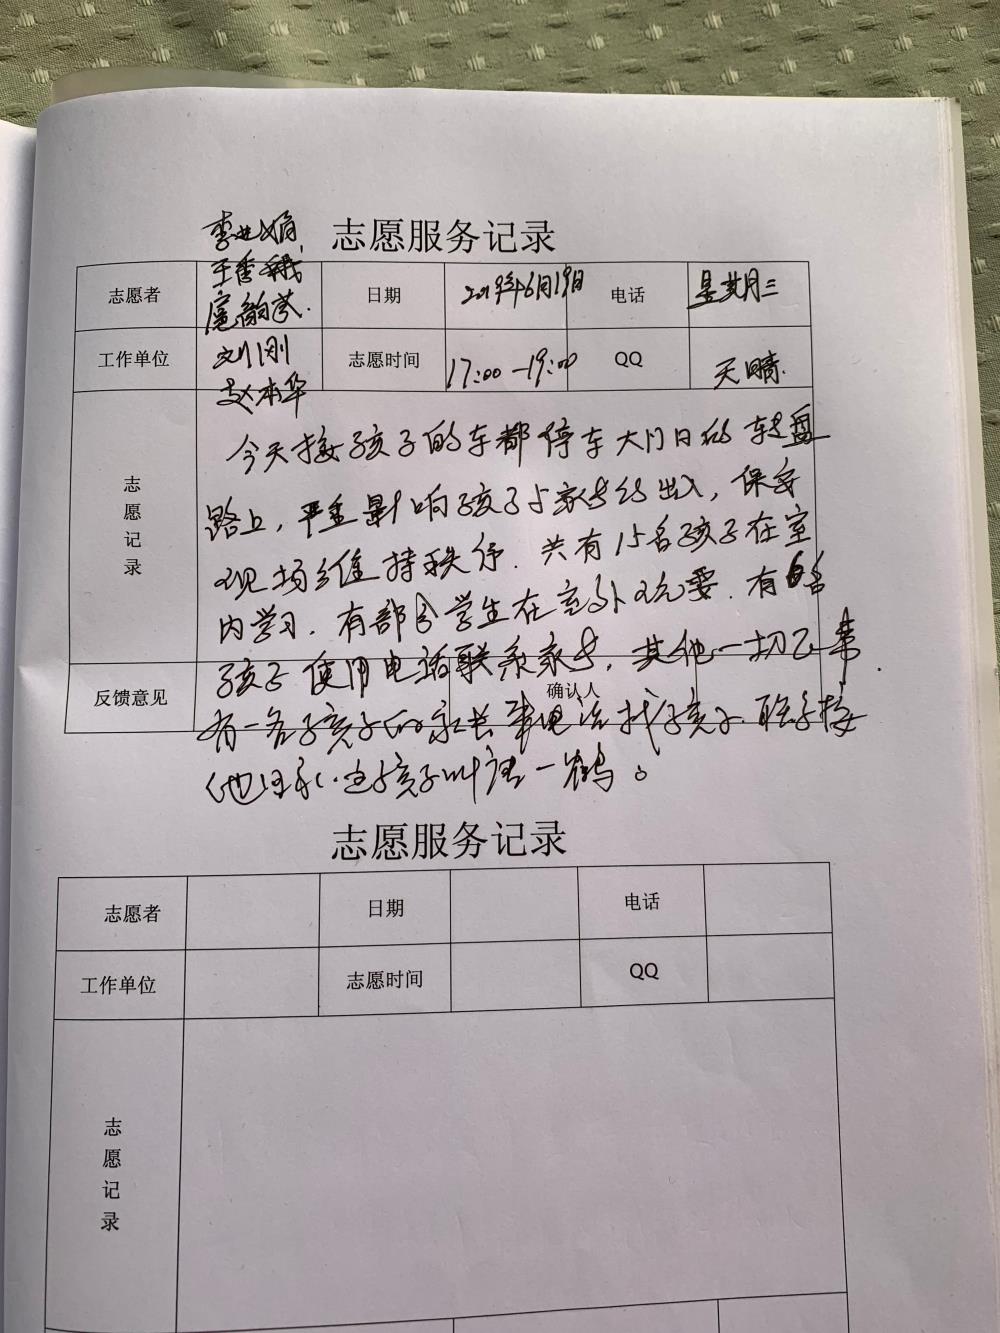 志愿服务记录
志愿者 李 娟 王香 日期 2019年6月19日 电话 星期三
工作单位 刘刚 赵本华 志愿时间 17:00-19:00 QQ 天晴.
志愿记录
今天接孩子的车都停车大门口的转盘
路上，严重影响孩子与家长的出入，保安
现场维持秩序. 共有15名孩子在室
内学习. 有部分学生在室外玩耍. 有6名
孩子使用电话联系家长，其他一切正常.
反馈意见 确认人
有一名孩子的家长来电话找孩子.
孩子叫唐一鸣。
志愿服务记录
志愿者 日期 电话
工作单位 志愿时间 QQ
志愿记录